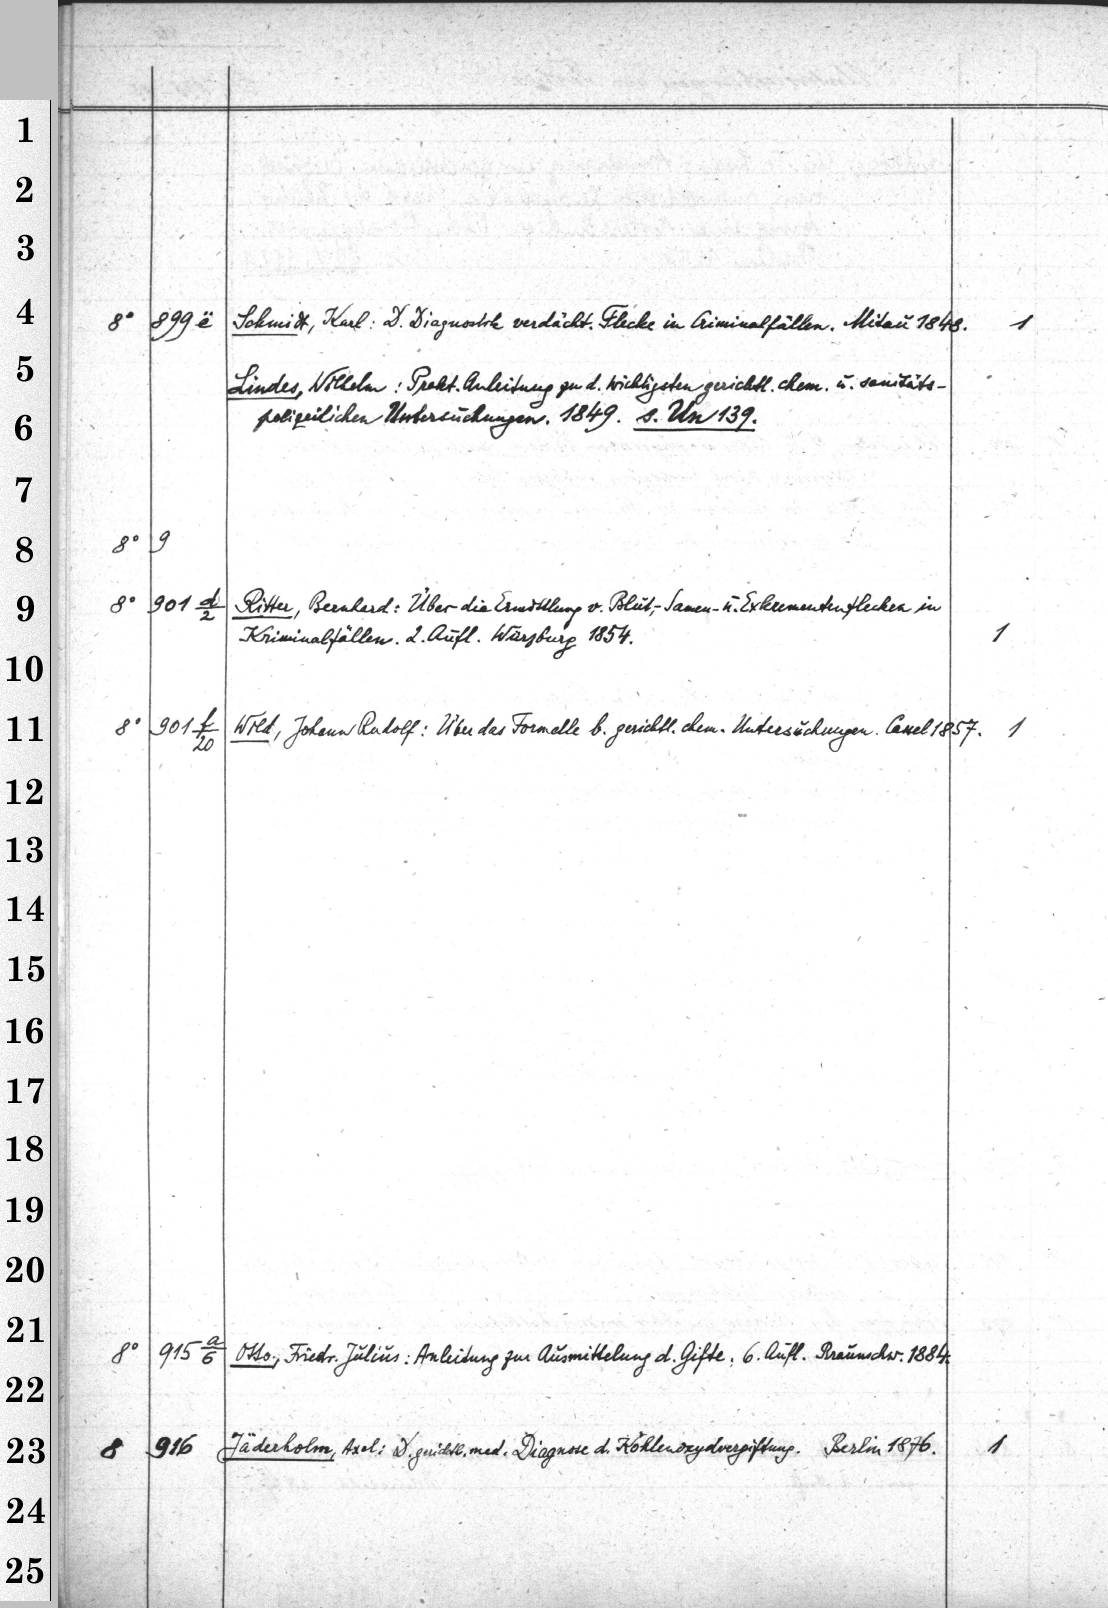 1
2
3
4
8° 899 ë Schmidt, Karl: D. Diagnostik verdächt. Flecke in Criminalfällen. Mitau 1848. 1
5
Lindes, Wilhelm: Prakt. Anleitung zu d. wichtigsten gerichtl. chem. u. sanitäts-
6
polizeilichen Untersuchungen. 1849. s. Un 139.
7
8
8° 9
9
8° 901 d/2 Ritter, Bernhard: Über die Ermittlung v. Blut-, Samen- u. Exkrementenflecken in
Kriminalfällen. 2. Aufl. Würzburg 1854. 1
10
11
8° 901 f/20 Wild, Johann Rudolf: Über das Formelle b. gerichtl. chem. Untersuchungen. Cassel 1857. 1
12
13
14
15
16
17
18
19
20
21
8° 915 a/6 Otto, Friedr. Julius: Anleitung zur Ausmittelung d. Gifte. 6. Aufl. Braunschw. 1884.
22
23
8 916 Jäderholm, Axel: D. gerichtl. med. Diagnose d. Kohlenoxydvergiftung. Berlin 1876. 1
24
25